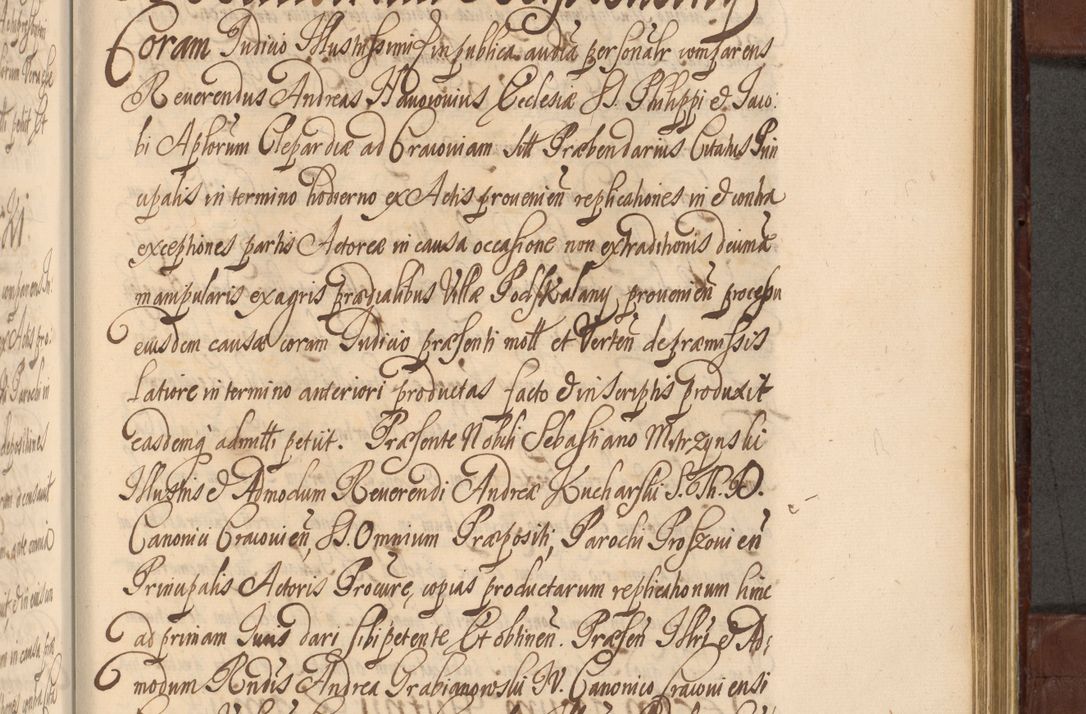 Coram Judicio Illustrissimi in publica audia personalr comparens
Reverendus Andreas Ecclesiæ S. Philippi et Jaco:
bi Aplorum Clepardiæ ad Cracoviam sitt Præbendarius Citatus Prin
cipalis in termino hodierno ex Actis provenien replicationes in et contra
exceptiones partis Actoreæ in causa occasione non extraditionis decimæ
manipularis ex agris prædialibus Villæ Podskalany provenien processu
eiusdem causæ coram Judicio præsenti mott et Verten de præmissis
Latiore in termino anteriori productas facto et in scriptis produxit
easdemq admitti petiit. Præsente Nobili Sebastiano Mstrzynski
Illustris et Admodum Reverendi Andreæ Kucharski S. Th. D.
Canonici Cracovien, SS. Omnium Præpositi, Parochi Proszovien
Principalis Actoris Procure, copias productarum replicationum hinc
ad primam Juris dari sibi petente Et obtinen. Præsen Illri et Ad:
modum Rndis Andrea Grabianowski IV. Canonico Cracoviensi